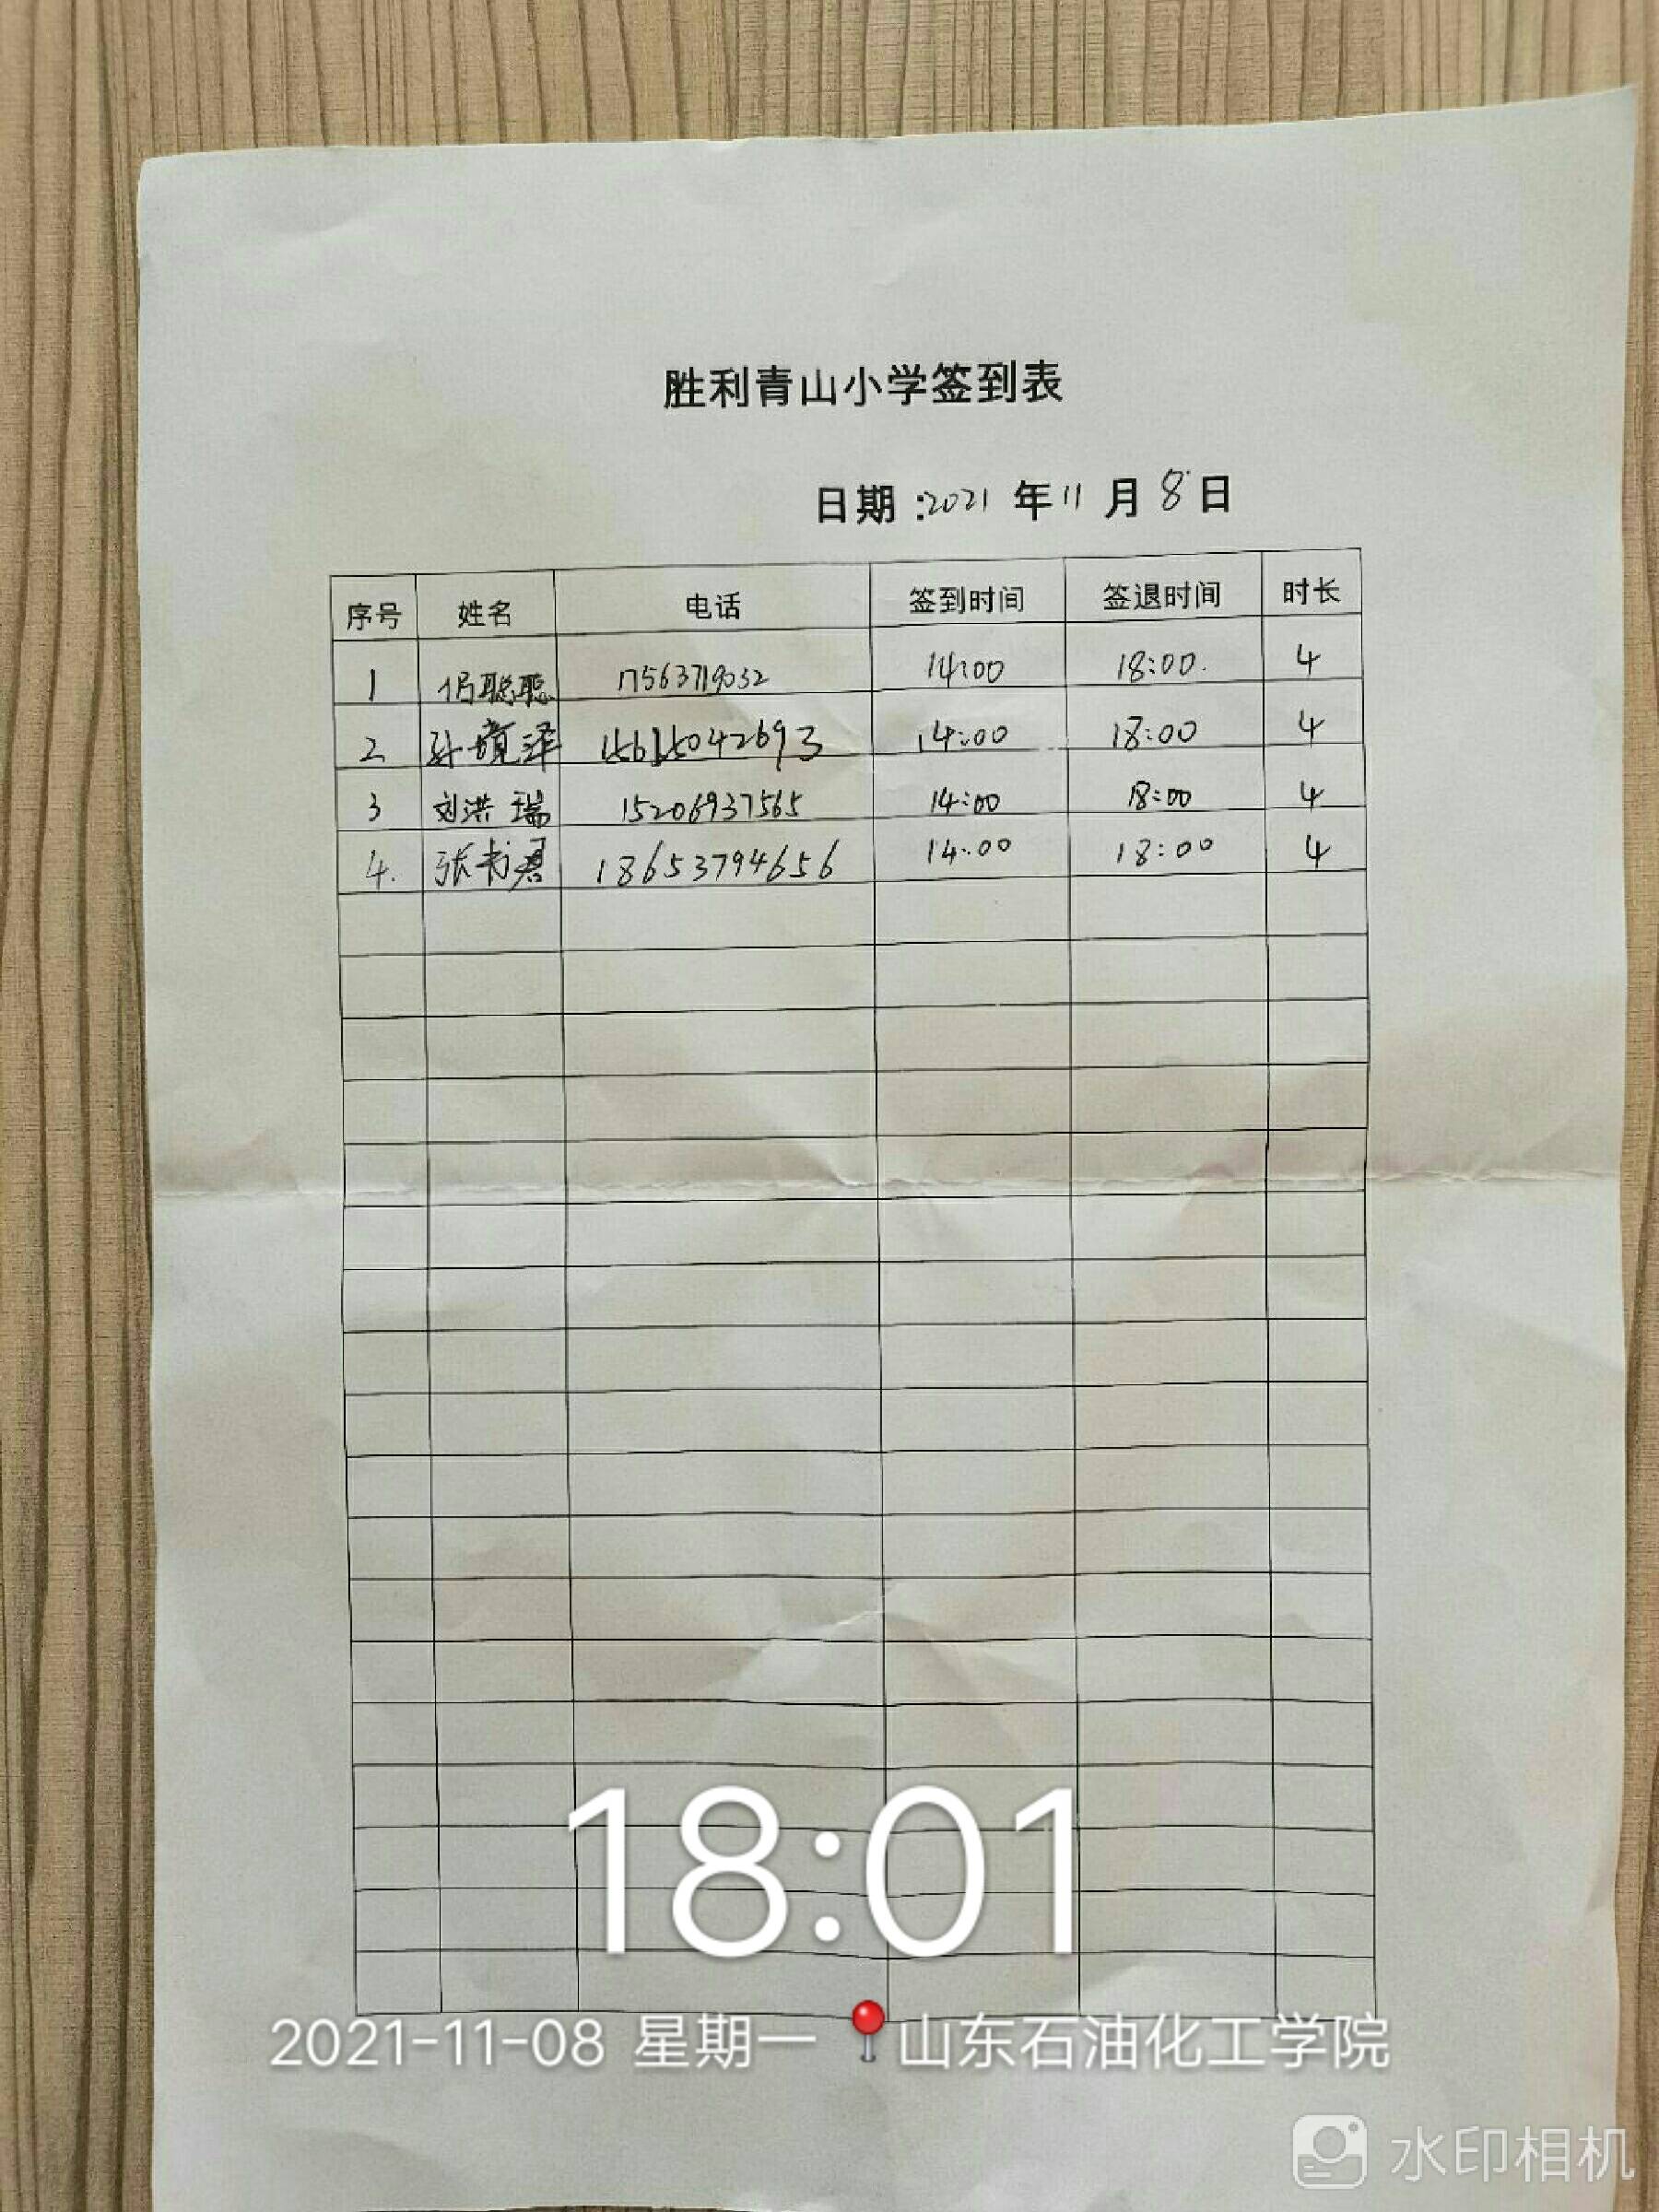 胜利青山小学签到表
日期:2021年11月8日
序号 姓名 电话 签到时间 签退时间 时长
1 聪聪 17563719032 14:00 18:00. 4
2 孙境泽 15615042693 14:00 18:00 4
3 刘洪瑞 15206937565 14:00 18:00 4
4. 张书君 18653794656 14:00 18:00 4
18:01
2021-11-08 星期一 山东石油化工学院
水印相机